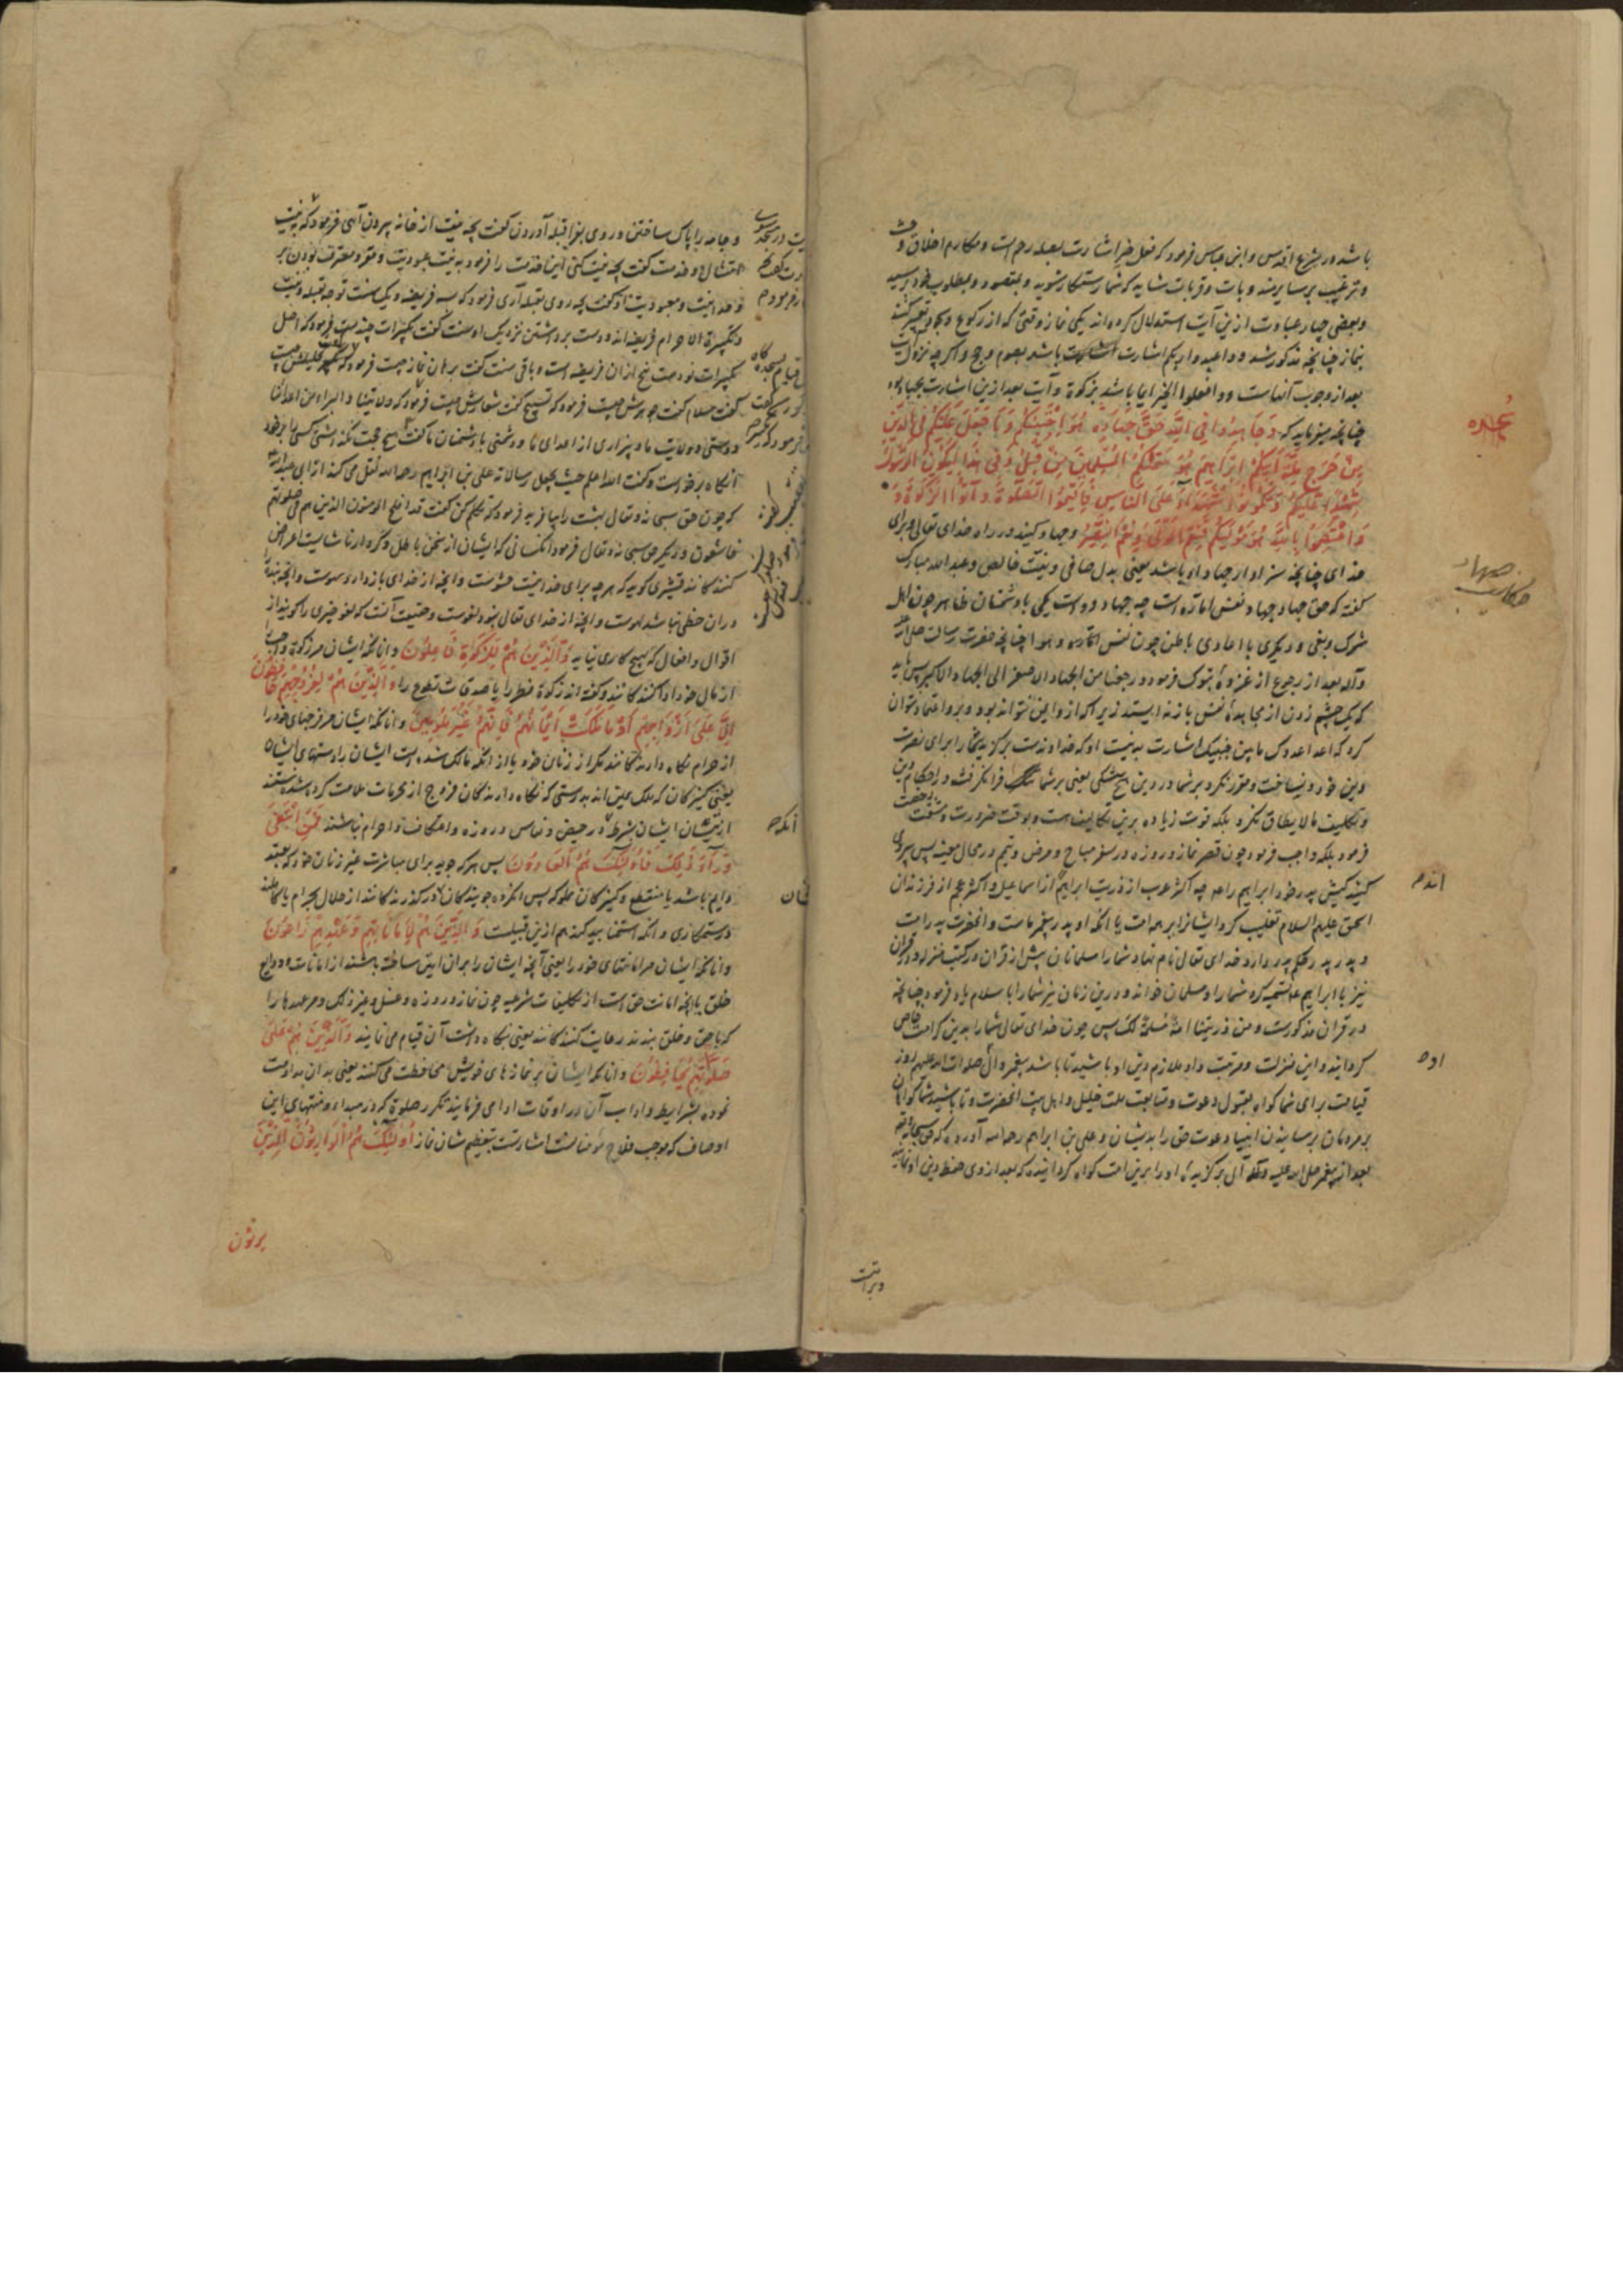 باشد در شرع اقدس و ابن عباس فرمود که فعل خیر اشارت بصله رحم است و مکارم اخلاق و
و ترغیب بر سایر مندوبات و قربات شاید که شما رستکار شوید و بمقصود و مطلوب خود برسید
و بعضی چهار عبادت ازین آیت استدلال کرده‌اند یکی نماز وقتی که از رکوع و سجود تعبیر کنند
بنماز چنانچه مذکور شد و واعبدوا ربکم اشارت باشد بصوم و حج و اگرچه نزول آیت
بعد از وجوب آنهاست و وافعلوا الخیر ایما باشد بزکوة و آیت بعد ازین اشارت بجهاد
چنانچه میفرماید که وَجَاهِدُوا فِی اللَّهِ حَقَّ جِهَادِهِ هُوَ اجْتَبَیٰکُمْ وَمَا جَعَلَ عَلَیْکُمْ فِی الدِّینِ
مِنْ حَرَجٍ مِلَّةَ اَبِیکُمْ اِبْرَاهِیمَ هُوَ سَمّٰیکُمُ الْمُسْلِمِینَ مِنْ قَبْلُ وَفِی هٰذَا لِیَکُونَ الرَّسُولُ
شَهِیدًا عَلَیْکُمْ وَتَکُونُوا شُهَدَآءَ عَلَی النَّاسِ فَاَقِیمُوا الصَّلٰوةَ وَآتُوا الزَّکٰوةَ وَ
وَاعْتَصِمُوا بِاللَّهِ هُوَ مَوْلٰیکُمْ فَنِعْمَ الْمَوْلٰی وَنِعْمَ النَّصِیرُ وجهاد کنید در راه خدای تعالی و برای
خدای چنانچه سزاوار جهاد او باشد یعنی بدل صافی و نیت خالص و عبد الله مبارک
گفته که حق جهاد جهاد نفس اماره است چه جهاد دو است یکی با دشمنان ظاهر چون اهل
شرک و بغی و دیگری با اعادی باطن چون نفس اماره و هوا چنانچه حضرت رسالت صلی الله علیه
وآله بعد از رجوع از غزوه تبوک فرمود رجعنا من الجهاد الاصغر الی الجهاد الاکبر پس باید
که یک چشم زدن از مجاهده نفس باز نه ایستد زیرا که از و ایمن نتواند بود و برو اعتماد نتوان
کرد که اعدا عدوک ما بین جنبیک اشارت بدنیت او که خداوندست برکزید شما را برای نصرت
دین خود و نساخت و مقرر نکرد بر شما در دین هیچ تنگی یعنی بر شما تنگ فرا نگرفت در احکام دین
و تکلیف مالایطاق نکرد بلکه قوت زیاده برین تکالیف هست و بوقت ضرورت و مشقت رخصت
فرمود بلکه واجب فرمود چون قصر نماز و روزه در سفر مباح و مرض و تیمم در محال معینه پس پیروی
کنید کیش پدر خود ابراهیم را چه اکثر عرب از ذریت ابراهیم از اسماعیل و اکثر عجم از فرزندان
اسحق علیهم السلام تغلیب کرد ایشانرا بر همه امت یا آنکه او پدر پیغمبر ماست و آنحضرت پدر امت
و پدر پدر حکم پدر دارد خدای تعالی نام نهاد شما را مسلمانان پیش از قرآن در کتب منزله و در قرآن
نیز یا ابراهیم تسمیه کرد شما را و مسلمان خواند و درین زمان نیز شما را باسلام یاد فرمود چنانچه
در قرآن مذکورست و من ذریتنا امة مسلمة لک پس چون خدای تعالی شما را بدین کرامت خاص
گردانید و این منزلت و مرتبت داد ملازم دین او باشید تا باشد پیغمبر و آل صلوات الله علیهم روز
قیامت برای شما گواه بقبول دعوت و متابعت ملت خلیل و اهل بیت آنحضرت و تا باشید شما گواهان
بر مردمان برسانیدن انبیا دعوت حق را بدیشان و علی بن ابراهیم رحمه الله آورده که حق سبحانه
بعد از پیغمبر صلی الله علیه وآله آلی برگزیده او را برین امت گواه گردانیده که بعد از وی حفظ دین او نمایند
سجده
اندم
اوه
و جامه را پاک ساختن و روی بقبله آوردن گفت بچه نیت از خانه بیرون آئی فرمود که به نیت
گفت بچه نیت کنی این خدمت را فرمود به نیت عبودیت و مقر و معترف بودن بر
وحدانیت و معبودیت او گفت بچه روی بقبله آری فرمود که سه فریضه و یک سنت توجه بقبله و نیت
و تکبیرة الاحرام فریضه‌اند و دست برداشتن نزدیک او سنت گفت تکبیرات چندست فرمود که اصل
تکبیرات نودست پنج ازان فریضه است و باقی سنت گفت برهان نماز چیست فرمود
گفت سلام گفت جوهرش چیست فرمود که تسبیح گفت شعارش چیست فرمود که ولایتنا و البراءة من اعدائنا
دوستی و ولایت ما و بیزاری از اعدای ما و دشمنی با دشمنان ما گفت هیچ حجت نگذاشتی کسی را بر خود
آنگاه برخواست و گفت الله اعلم حیث یجعل رسالاته علی بن ابراهیم رحمه الله نقل می‌کند از ابی عبد الله
که چون حق سبحانه و تعالی بهشت را بیافرید فرمود که تکلم کن گفت قد افلح المؤمنون الذین هم فی صلوتهم
خاشعون و دیگر حق سبحانه و تعالی فرمود آنکسانی که ایشان از سخن باطل و کردار ناشایست اعراض
کنندکانند قشیری گوید که هرچه برای خدا نیست حشوست و آنچه از خدای باز دارد سهوست و آنچه بنده را
دران حظی نباشد لهوست و آنچه از خدای تعالی نبود لغوست و حقیقت آنست که لغو چیزی را گویند از
اقوال و افعال که بهیچ کاری نیاید وَالَّذِینَ هُمْ لِلزَّکٰوةِ فَاعِلُونَ و آنانکه ایشان مر زکوة واجب را
از مال خود ادا کنندکانند و گفته‌اند زکوة فطر را یا صدقات تطوع را وَالَّذِینَ هُمْ لِفُرُوجِهِمْ حَافِظُونَ
اِلَّا عَلٰی اَزْوَاجِهِمْ اَوْ مَا مَلَکَتْ اَیْمَانُهُمْ فَاِنَّهُمْ غَیْرُ مَلُومِینَ و آنانکه ایشان مر فرجهای خود را
از حرام نگاه دارندکانند مگر از زنان خود یا از آنکه مالک شده است ایشان را دستهای ایشان
یعنی کنیزکان که ملک یمین‌اند بدرستی که نگاه دارندکان فروج از محرمات ملامت کرده شده نیستند
از ایشان بشرط در حیض و نفاس و روزه و اعتکاف و احرام نباشند فَمَنِ ابْتَغٰی
وَرَآءَ ذٰلِکَ فَاُولٰئِکَ هُمُ الْعَادُونَ پس هرکه جوید برای مباشرت غیر زنان خود که بعقد
دایم باشد یا منقطع و کنیزکان مملوکه پس آنکروه جویندکان درگذرندکانند از حلال بحرام یا کاملند
در ستمکاری و آنکه استمنا بید کند هم ازین قبیلست وَالَّذِینَ هُمْ لِاَمَانَاتِهِمْ وَعَهْدِهِمْ رَاعُونَ
و آنانکه ایشان مر امانتهای خود را یعنی آنچه ایشان را بران امین ساخته باشند از امانات و ودایع
خلق یا آنچه امانت حق است از تکلیفات شرعیه چون نماز و روزه و غسل و غیر ذلک و مر عهدها را
که با حق و خلق بندند رعایت کنندکانند یعنی نگاه داشت آن قیام می‌نمایند وَالَّذِینَ هُمْ عَلٰی
صَلَوَاتِهِمْ یُحَافِظُونَ و آنانکه ایشان بر نمازهای خویش محافظت می‌کنند یعنی بدان مداومت
نموده بشرایط و آداب آن در اوقات ادا می‌فرمایند تکرر صلوة که در مبداء و منتهای این
اوصاف که موجب فلاح مؤمنانست اشارتست بتعظیم شان نماز اُولٰئِکَ هُمُ الْوَارِثُونَ الَّذِینَ
یرثون